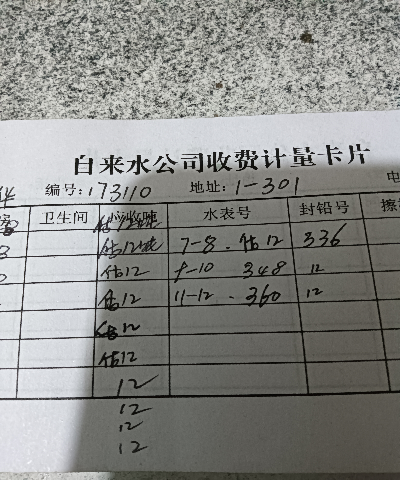 自来水公司收费计量卡片
编号:173110 地址:1-301 电
卫生间 应收吨 水表号 封铅号 擦
估12吨
估12吨 7-8. 估12 336
估12 9-10 348 12
估12 11-12. 360 12
估12
估12
12
12
12
12